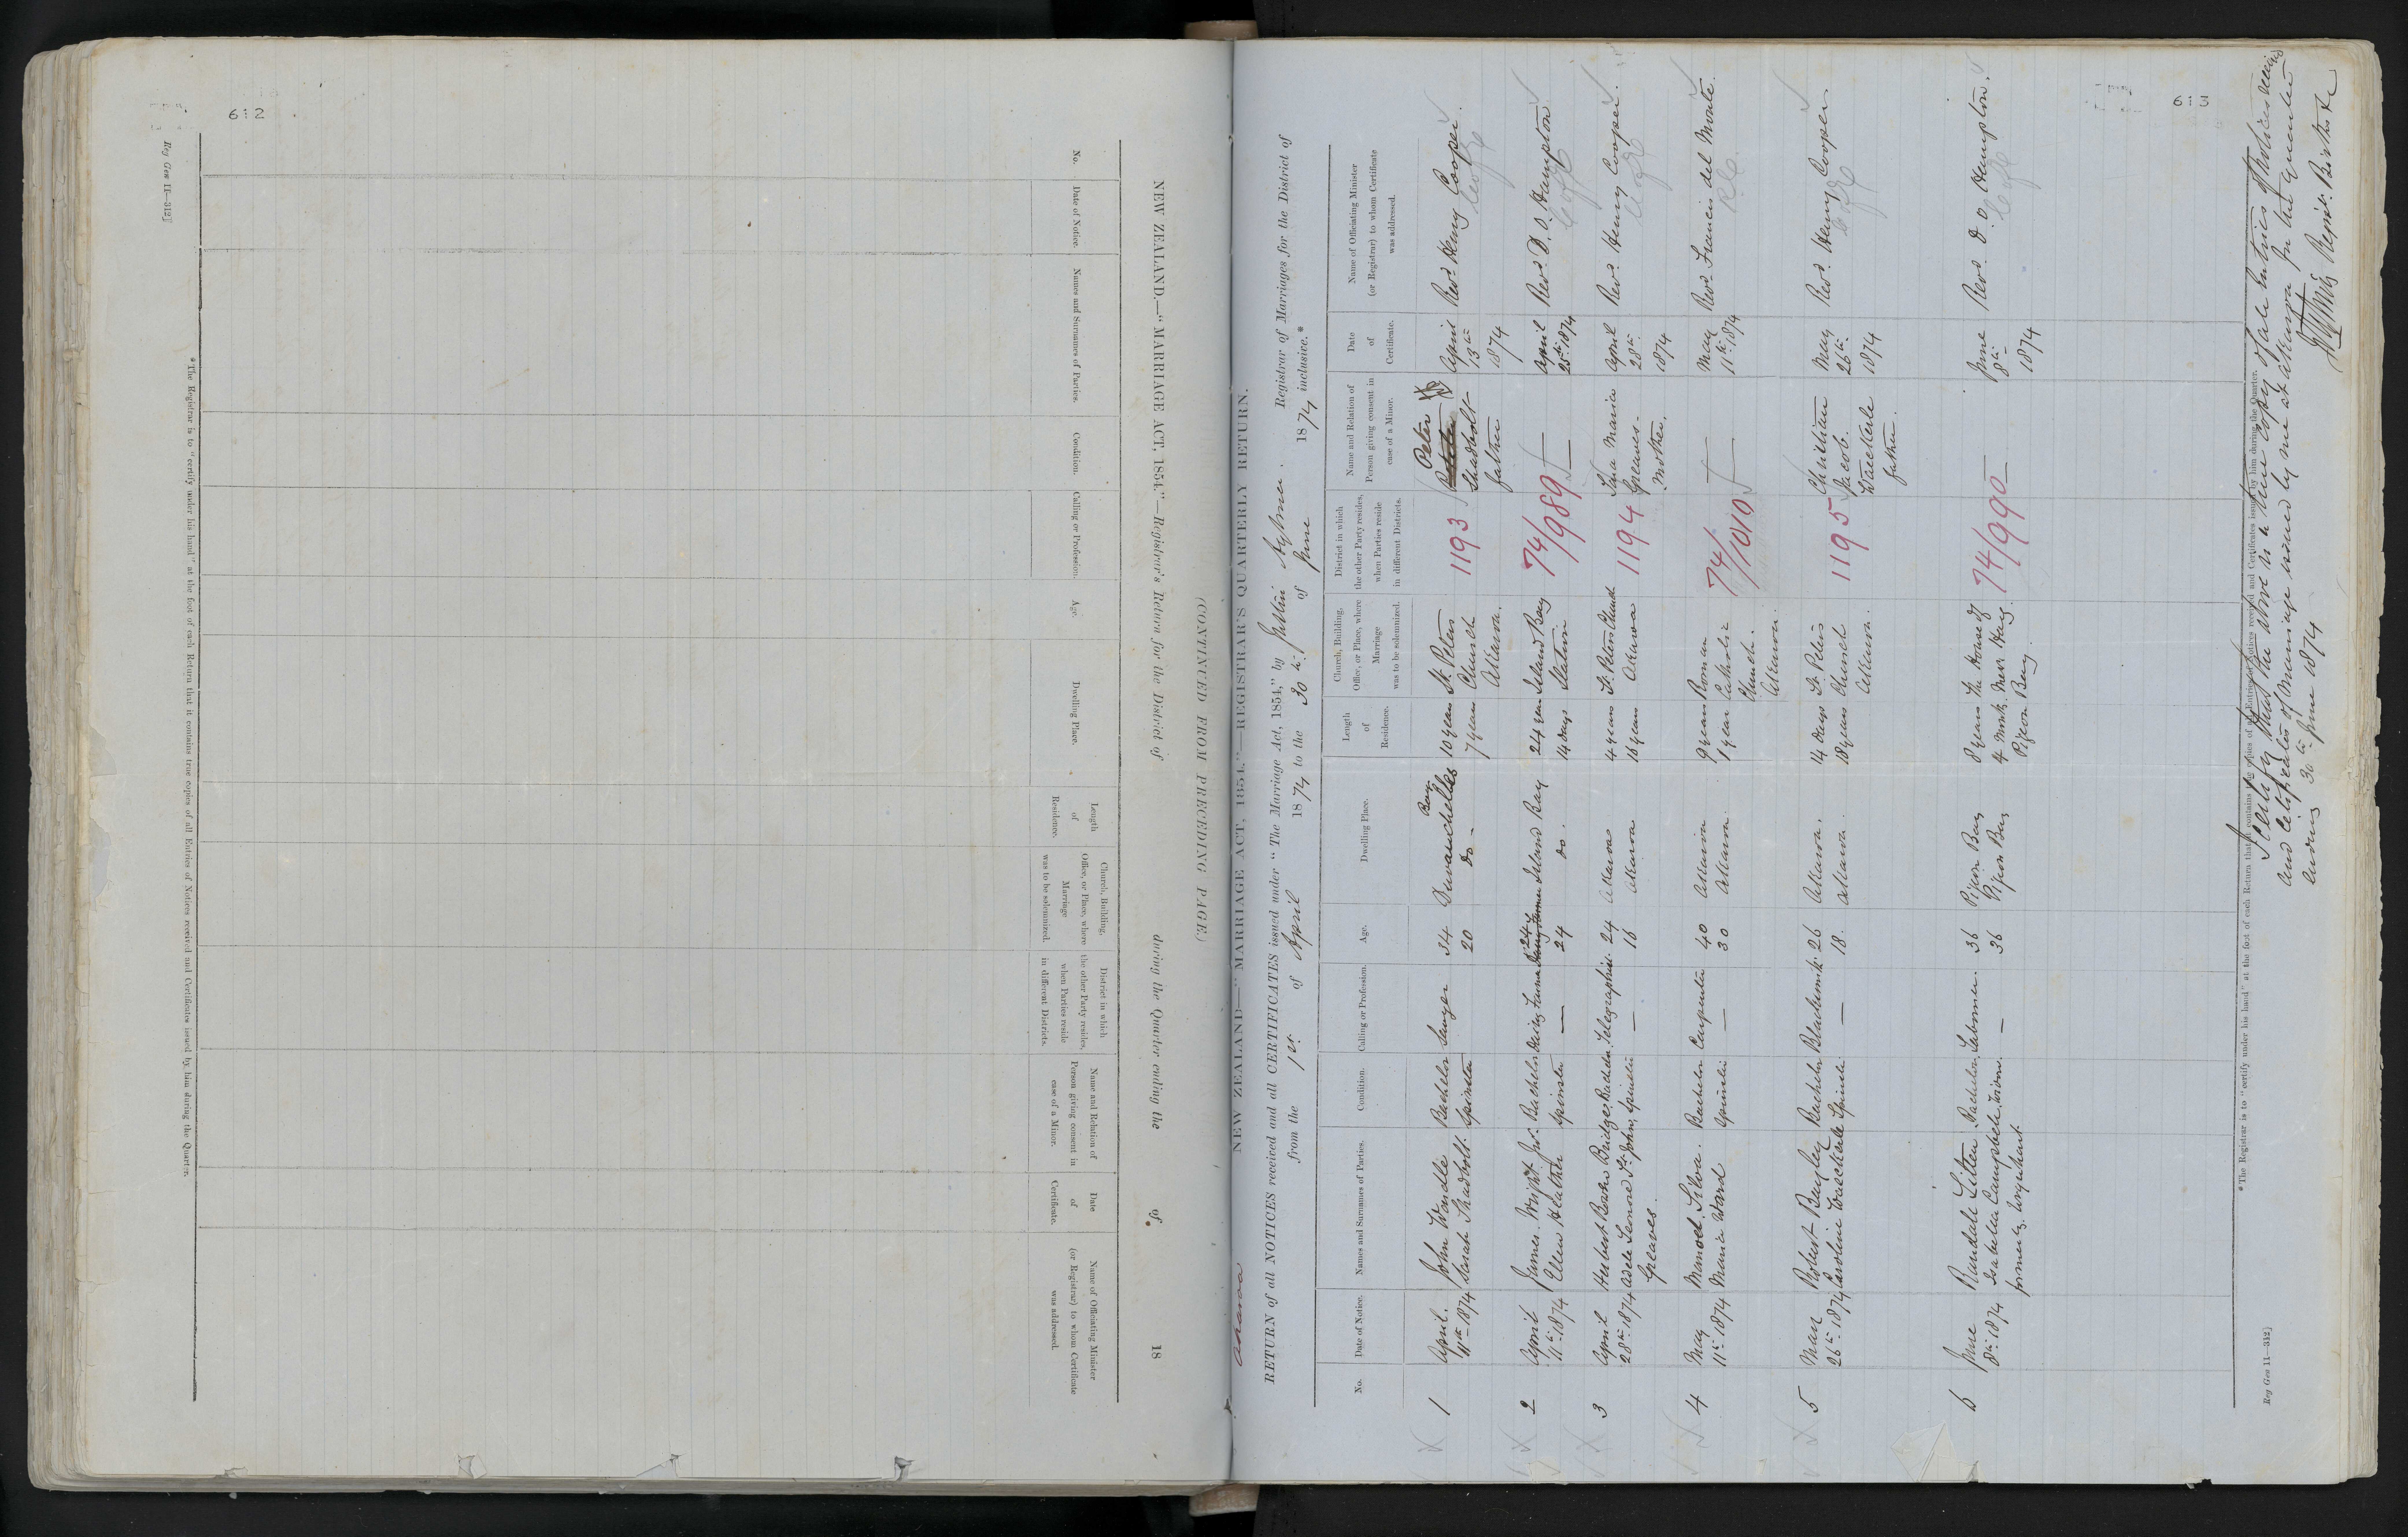 612
NEW ZEALAND.—"MARRIAGE ACT, 1854."—Registrar's Return for the District of during the Quarter ending the of 18
(CONTINUED FROM PRECEDING PAGE.)
No.
Date of Notice.
Names and Surnames of Parties.
Condition.
Calling or Profession.
Age.
Dwelling Place.
Length
of
Residence.
Church, Building,
Office, or Place, where
Marriage
was to be solemnized.
District in which
the other Party resides,
when Parties reside
in different Districts.
Name and Relation of
Person giving consent in
case of a Minor.
Date
of
Certificate.
Name of Officiating Minister
(or Registrar) to whom Certificate
was addressed.
*The Registrar is to "certify under his hand" at the foot of each Return that it contains true copies of all Entries of Notices received and Certificates issued by him during the Quarter.
Reg Gen 11—312]
613
Akaroa
NEW ZEALAND—"MARRIAGE ACT, 1854."—REGISTRAR'S QUARTERLY RETURN.
RETURN of all NOTICES received and all CERTIFICATES issued under "The Marriage Act, 1854," by Justin Aylmer. Registrar of Marriages for the District of
from the 1st of April 1874 to the 30th of June 1874 inclusive.*
No.
Date of Notice.
Names and Surnames of Parties.
Condition.
Calling or Profession.
Age.
Dwelling Place.
Length
of
Residence.
Church, Building,
Office, or Place, where
Marriage
was to be solemnized.
District in which
the other Party resides,
when Parties reside
in different Districts.
Name and Relation of
Person giving consent in
case of a Minor.
Date
of
Certificate.
Name of Officiating Minister
(or Registrar) to whom Certificate
was addressed.
1 April. John Wandle Bachelor Sawyer 34 Duvauchelles Bay 10 years St. Peters 1193 Peter April Revd. Henry Cooper.
11th 1874 Sarah Shadbolt. Spinster 20 do - 7 years Church Shadbolt 13th C of E
Akaroa. father 1874
2 April James Wright Jnr. Bachelor Dairy Farmer 24 Island Bay 24 years Island Bay 74/989 — April Revd. D. O. Hampton
11th 1874 Ellen Heather Spinster — 24 do. 14 days Station 25th 1874 C of E
3 April Herbert Bridge Bachelor Telegraphist 24 Akaroa 4 years St. Peters Church 1194 Maria April Revd. Henry Cooper.
28th 1874 Adele Leonore St. John Spinster — 16 Akaroa 16 years Akaroa Greaves - 28th C of E
Greaves. Mother. 1874
4 May Manoel Silva. Bachelor Carpenter 40 Akaroa 9 years Roman 74/1010 — May Revd. Francis del Monte.
11th 1874 Maria Ward Spinster — 30 Akaroa. 1 year Catholic 11th 1874 R.C.
Church.
Akaroa.
5 May Robert Bayley Bachelor Blacksmith 26 Akaroa. 14 days St. Peters 1195 Christian May Revd. Henry Cooper.
26th 1874 Caroline Waeckerle Spinster — 18. Akaroa. 18 years Church Jacob. 26th C of E
Akaroa. Waeckerle 1874
father.
6 June Randale Bachelor Labourer. 36 Pigeon Bay 8 years The House of 74/990 — June Revd. D. O. Hampton.
8th 1874 Isabella Campbell, Widow. — 36 Pigeon Bay 4 Month. Mears Hay. 8th C of E
formerly Urquhart. Pigeon Bay 1874
*The Registrar is to "certify under his hand" at the foot of each Return that it contains true copies of all Entries of Notices received and Certificates issued by him during the Quarter.
Reg Gen 11—312]
I certify that the above is a true copy of all entries of Notices received
and Certificates of Marriage issued by me at Akaroa for the Quarter
ending 30th June 1874
Regist. Births &c